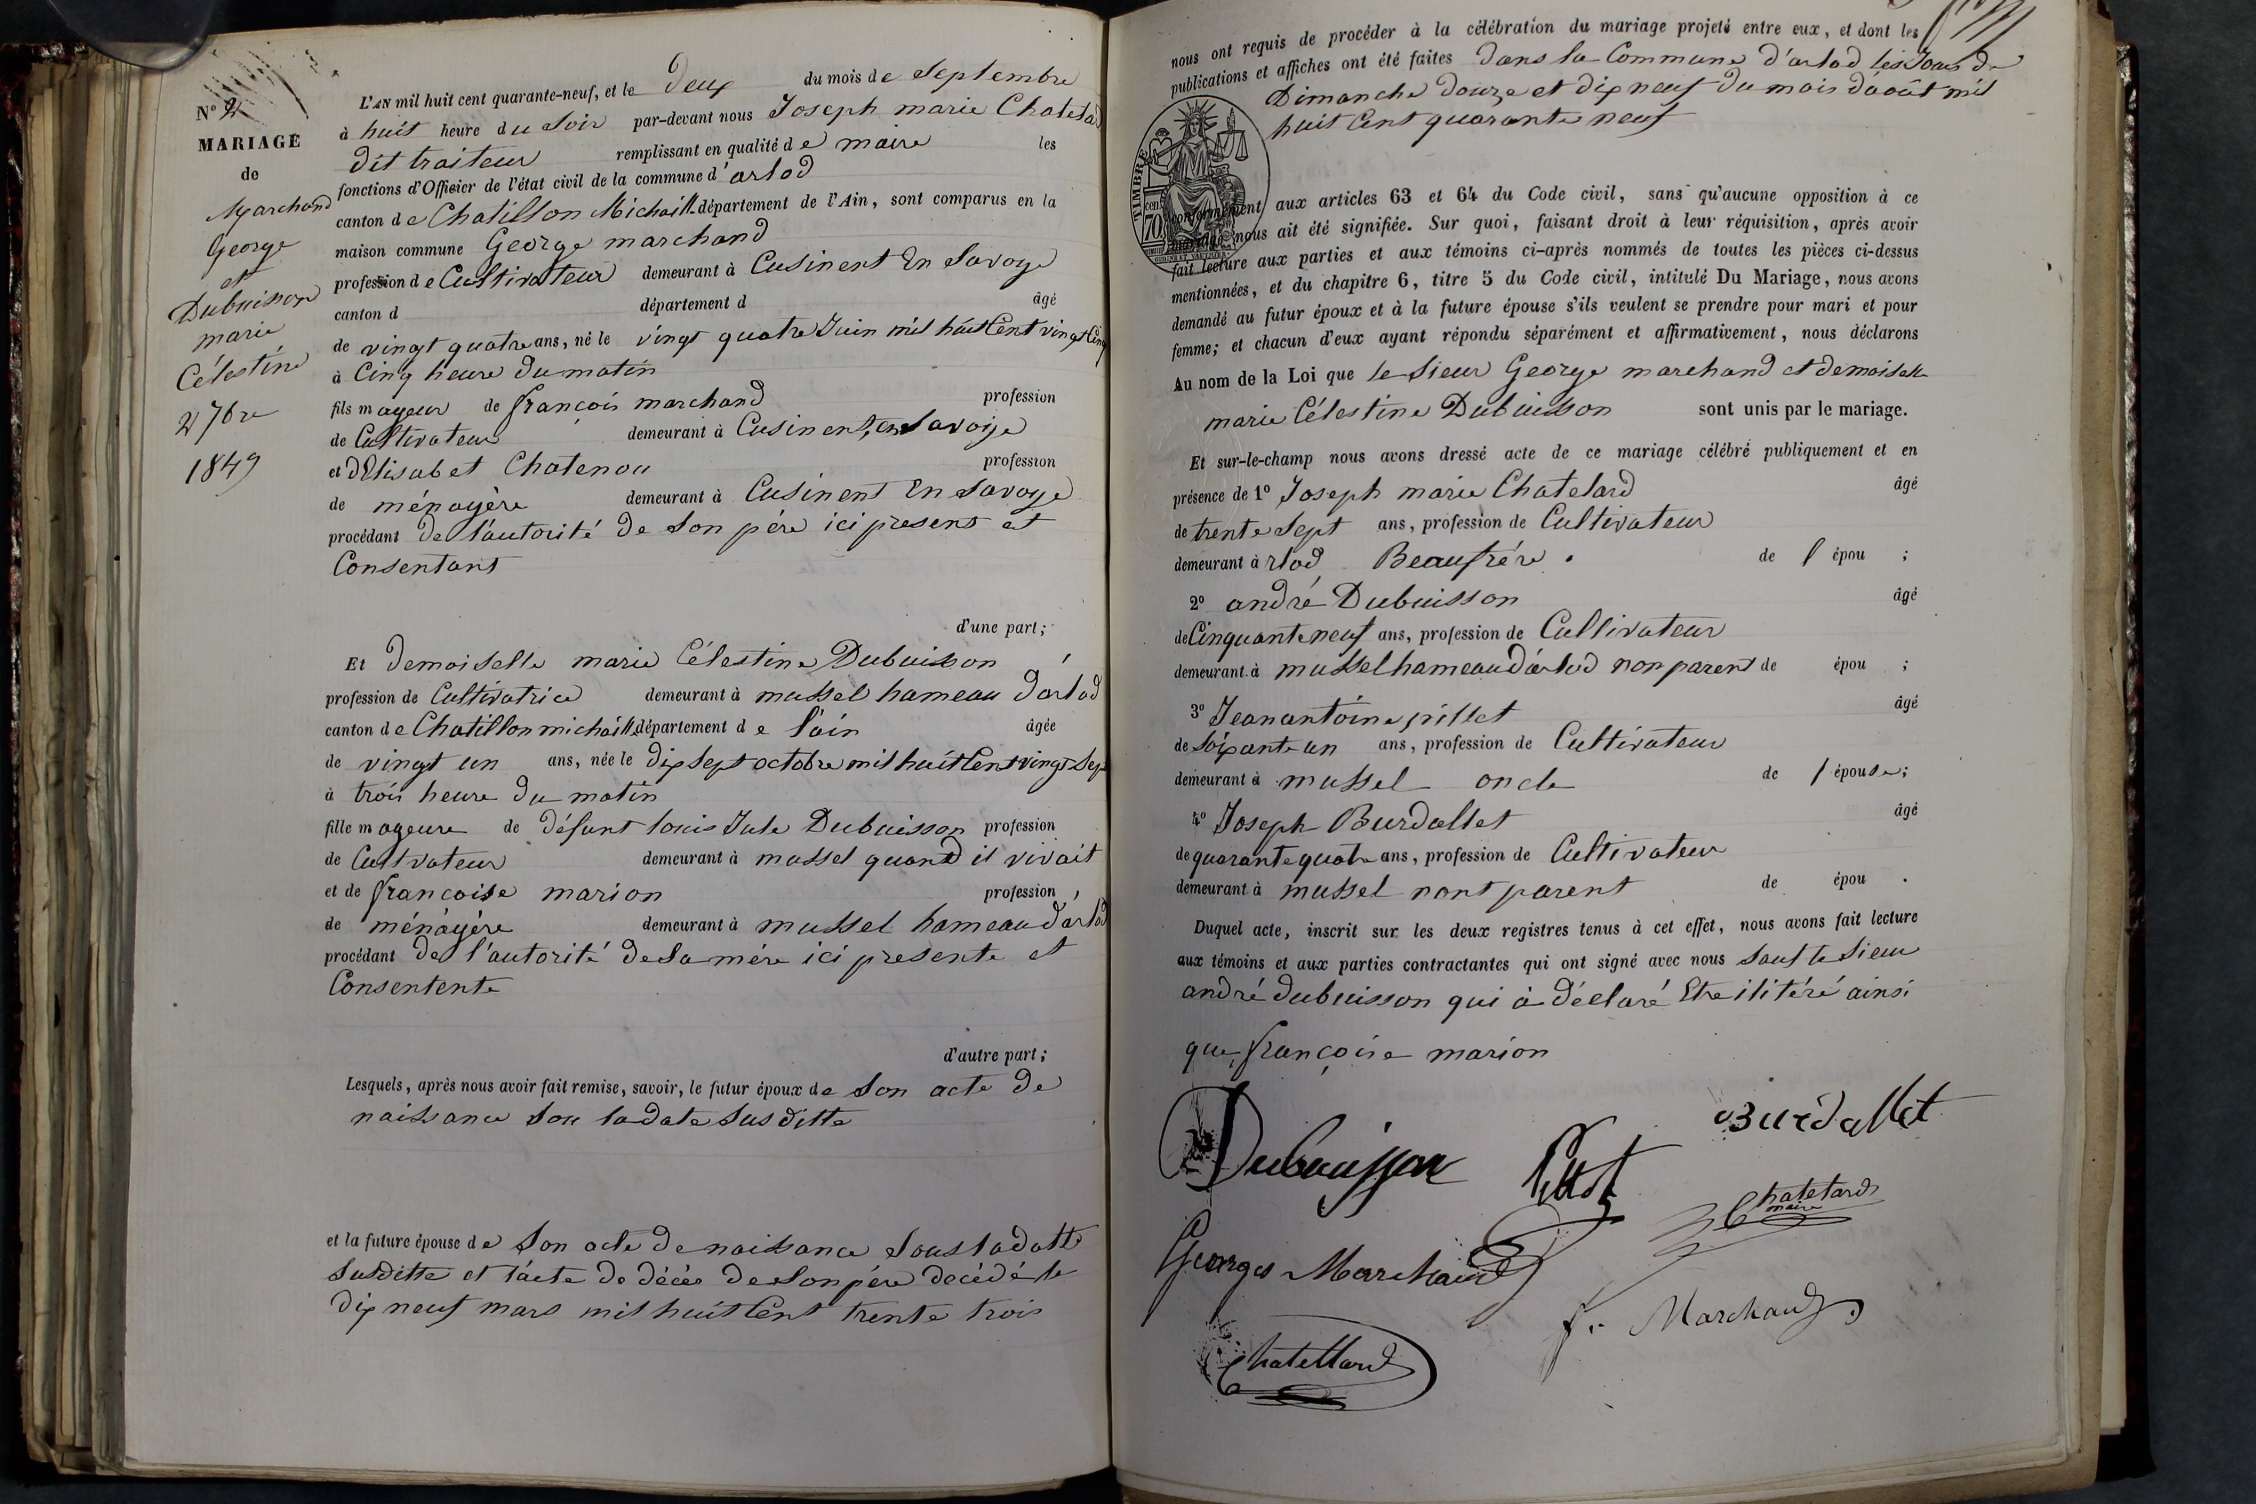 N° 2
MARIAGE
de
Marchand
George
et
Dubuisson
marie
Célestine
2 7bre
1849
L'AN mil huit cent quarante-neuf, et le deux du mois de Septembre
à huit heure du Soir par-devant nous Joseph marie Chatelard
dit traiteur remplissant en qualité de maire les
fonctions d'Officier de l'état civil de la commune d'arlod
canton de Chatillon Michaille département de l'Ain, sont comparus en la
maison commune George marchand
profession de Cultivateur demeurant à Cusinent En Savoye
canton d département d âgé
de vingt quatre ans, né le vingt quatre Juin mil huit Cent vingt Cinq
à Cinq heure du matin
fils mageur de françois marchand profession
de Cultivateur demeurant à Cusinent, en Savoije
et d'Elisabet Chatenou profession
de ménagère demeurant à Cusinent En Savoye
procédant de l'autorité de Son père ici present et
Consentant
d'une part;
Et demoiselle marie Célestine Dubuisson
profession de Cultivatrice demeurant à mussel hameau d'arlod
canton de Chatillon michaille département de l'ain âgée
de vingt un ans, née le dix Sept octobre mil huit Cent vingt Sept
à trois heure du matin
fille mageure de défunt louis Jule Dubuisson profession
de Cultvateur demeurant à mussel quand il vivait
et de francoise marion profession
de ménagère demeurant à mussel hameau d'arlod
procédant de l'autorité de Sa mère ici presente et
Consentente
d'autre part;
Lesquels, après nous avoir fait remise, savoir, le futur époux de Son acte de
naissance Sou la date Susditte
et la future épouse de Son acte de naissance Sous la datte
Susditte et l'acte de décès de Son père décédé le
dix neuf mars mil huit Cent trente trois
nous ont requis de procéder à la célébration du mariage projeté entre eux, et dont les
publications et affiches ont été faites dans la Commune d'arlod les Jours de
Dimanche douze et dix neuf du mois d'août mil
huit Cent quarante neuf
TIMBRE
70
conformément aux articles 63 et 64 du Code civil, sans qu'aucune opposition à ce
mariage nous ait été signifiée. Sur quoi, faisant droit à leur réquisition, après avoir
fait lecture aux parties et aux témoins ci-après nommés de toutes les pièces ci-dessus
mentionnées, et du chapitre 6, titre 5 du Code civil, intitulé Du Mariage, nous avons
demandé au futur époux et à la future épouse s'ils veulent se prendre pour mari et pour
femme; et chacun d'eux ayant répondu séparément et affirmativement, nous déclarons
Au nom de la Loi que le Sieur George marchand et demoiselle
marie Célestine Dubuisson sont unis par le mariage.
Et sur-le-champ nous avons dressé acte de ce mariage célébré publiquement et en
présence de 1° Joseph marie Chatelard âgé
de trente Sept ans, profession de Cultivateur
demeurant à rlod Beaufrére de l épou ;
2° andré Dubuisson âgé
de Cinquante neuf ans, profession de Cultivateur
demeurant à mussel hameau d'arlod non parent de épou ;
3° Jean antoine pillet âgé
de Soixante un ans, profession de Cultivateur
demeurant à mussel oncle de l épouse;
4° Joseph Burdallet âgé
de quarante quatre ans, profession de Cultivateur
demeurant à mussel nont parent de épou .
Duquel acte, inscrit sur les deux registres tenus à cet effet, nous avons fait lecture
aux témoins et aux parties contractantes qui ont signé avec nous Sauf le Sieur
andré dubuisson qui à déclaré Etre ilitéré ainsi
que françoise marion
Dubuisson Burdallet
Chatelard
maire
Georges Marchand
f. Marchand
Chatellard